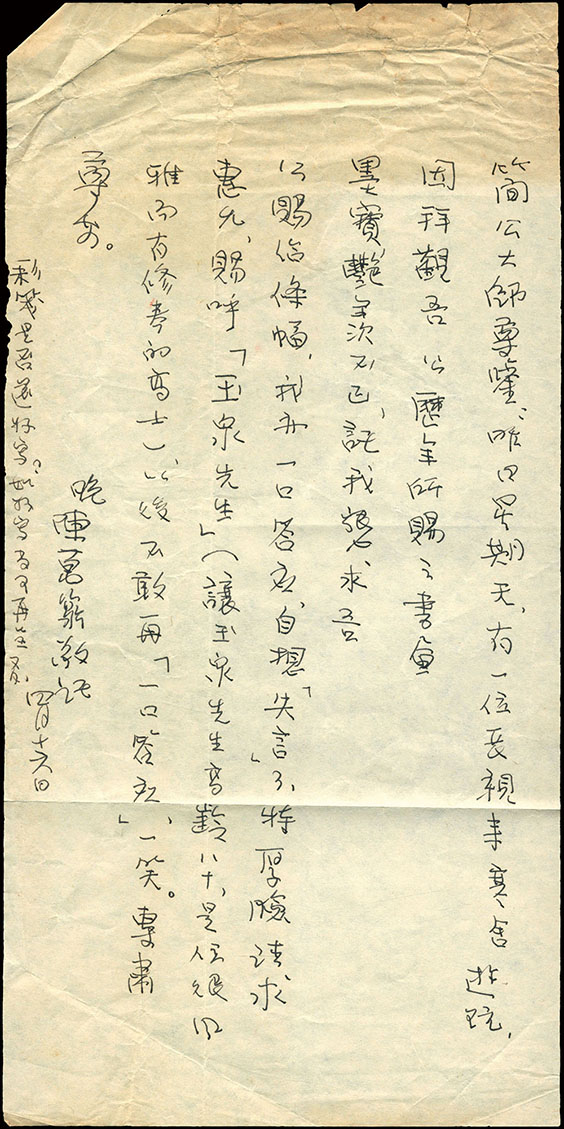 簡公大師尊鑒：昨日星期天，有一位長親來寒舍遊玩，
因拜觀吾公歷年所賜之書翰
墨寶，艷羨不已，託我懇求吾
公賜給條幅，我亦一口答应，自想「失言」了，特厚臉請求
惠允，賜呼「玉泉先生」（讓玉泉先生高齡八十，是位很风
雅而有修养的高士）以後不敢再「一口答应」一笑。專肅
尊安。
晚陳萬籟敬託
四月十六日
彩箋是否還好寫？如好寫